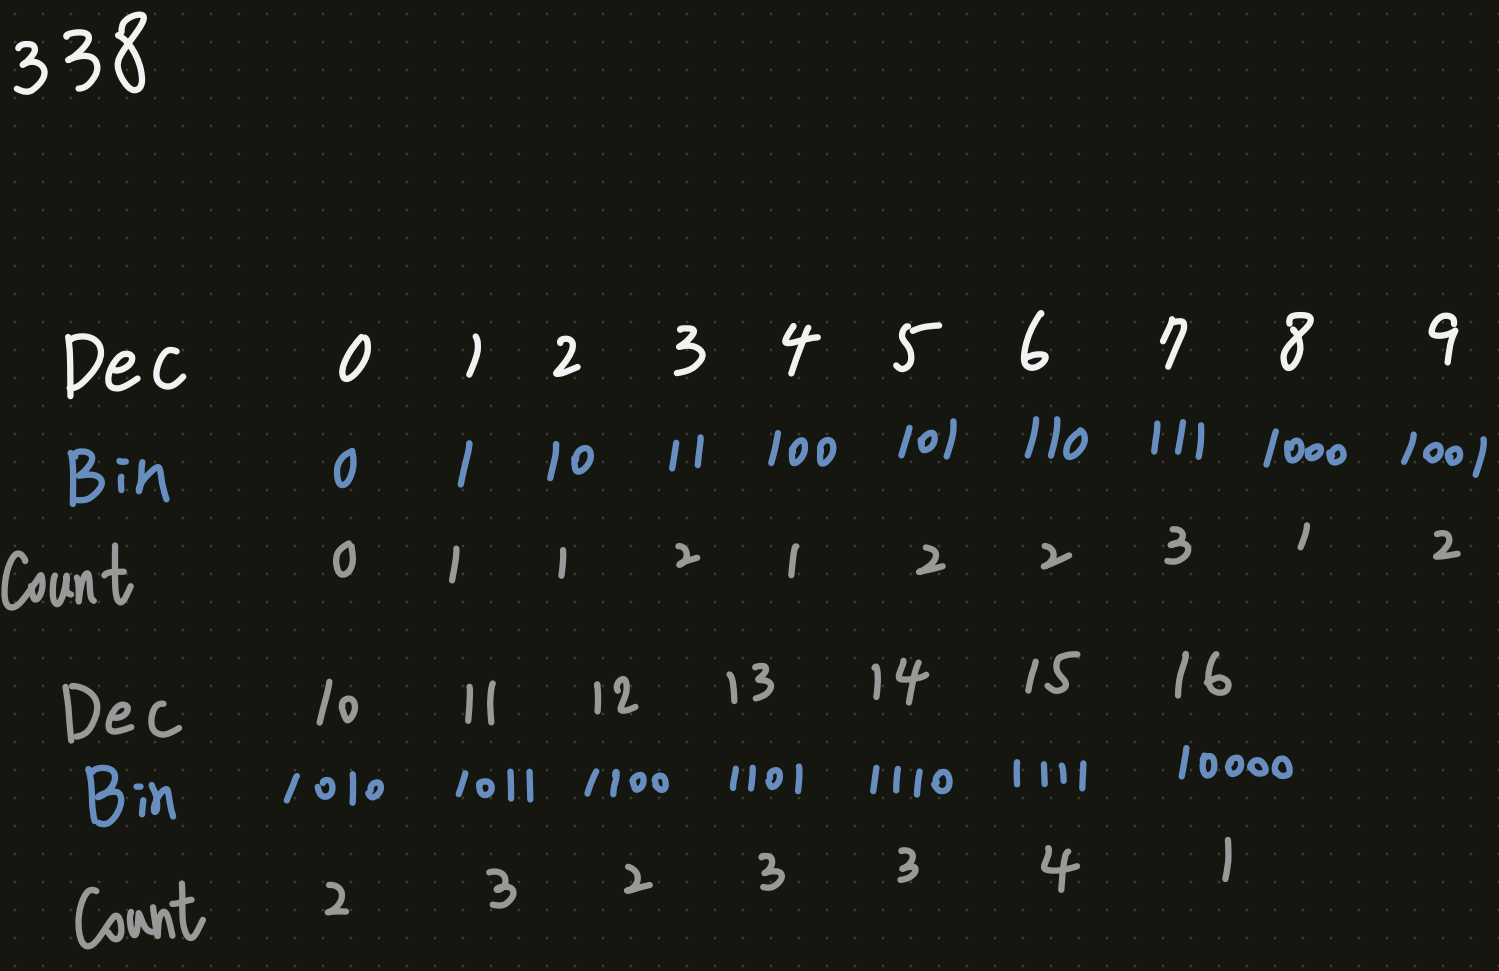 338
Dec 0 1 2 3 4 5 6 7 8 9
Bin 0 1 10 11 100 101 110 111 1000 1001
Count 0 1 1 2 1 2 2 3 1 2
Dec 10 11 12 13 14 15 16
Bin 1010 1011 1100 1101 1110 1111 10000
Count 2 3 2 3 3 4 1